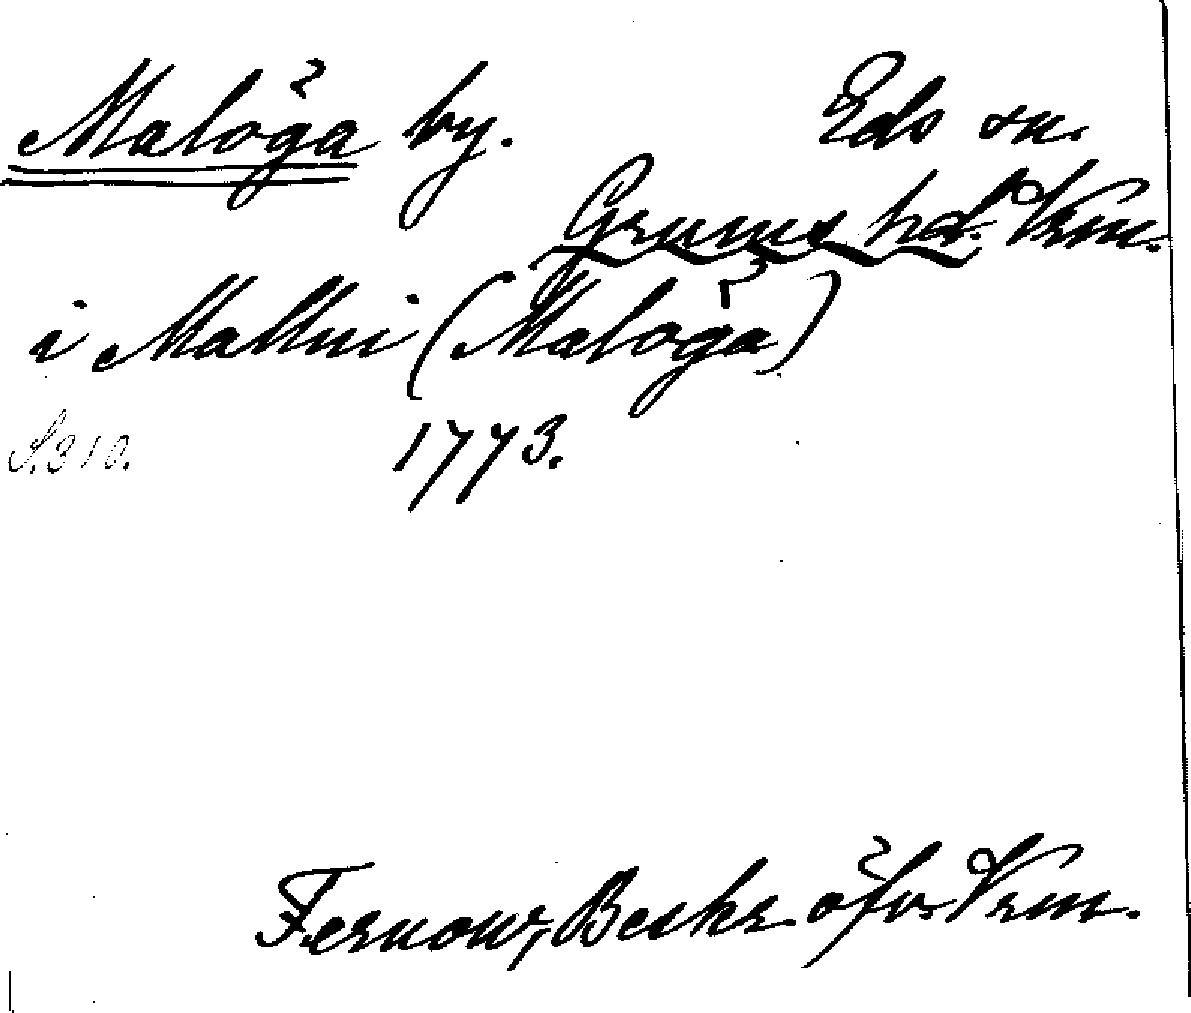 Malöga by. Eds sn.
Grums hd. Vrm.
i Mallni (Malöga)
S. 310. 1773.
Fernow, Beskr. öfv. Vrm.